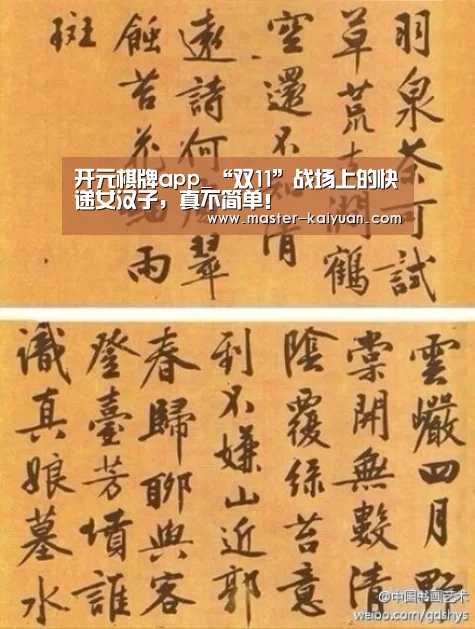 羽泉茶可試
草荒支澗鶴
空還不知清
遠詩何翠
蝕苔花雨
斑
开元棋牌app_“双11”战场上的快
递女汉子，真不简单！
www.master-kaiyuan.com
雲巖四月野
棠開無數清
陰覆綠苔意
到不嫌山近郭
春歸聊與客
登臺芳墳誰
識真娘墓水
@中国书画艺术
weibo.com/gdshys